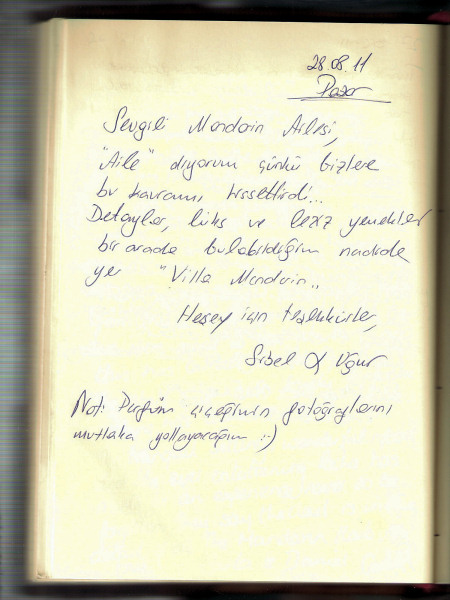 28.08.11
Pazar
Sevgili Mandarin Ailesi,
"Aile" diyorum çünkü bizlere
bu kavramı hissettirdi...
Detaylar, lüks ve leziz yemekler
bir arada bulabildiğim nadide
yer "Villa Mandarin„
Herşey için teşekkürler,
Sibel & Uğur
Not: Parfüm çiçeğinin fotoğraflarını
mutlaka yollayacağım :-)